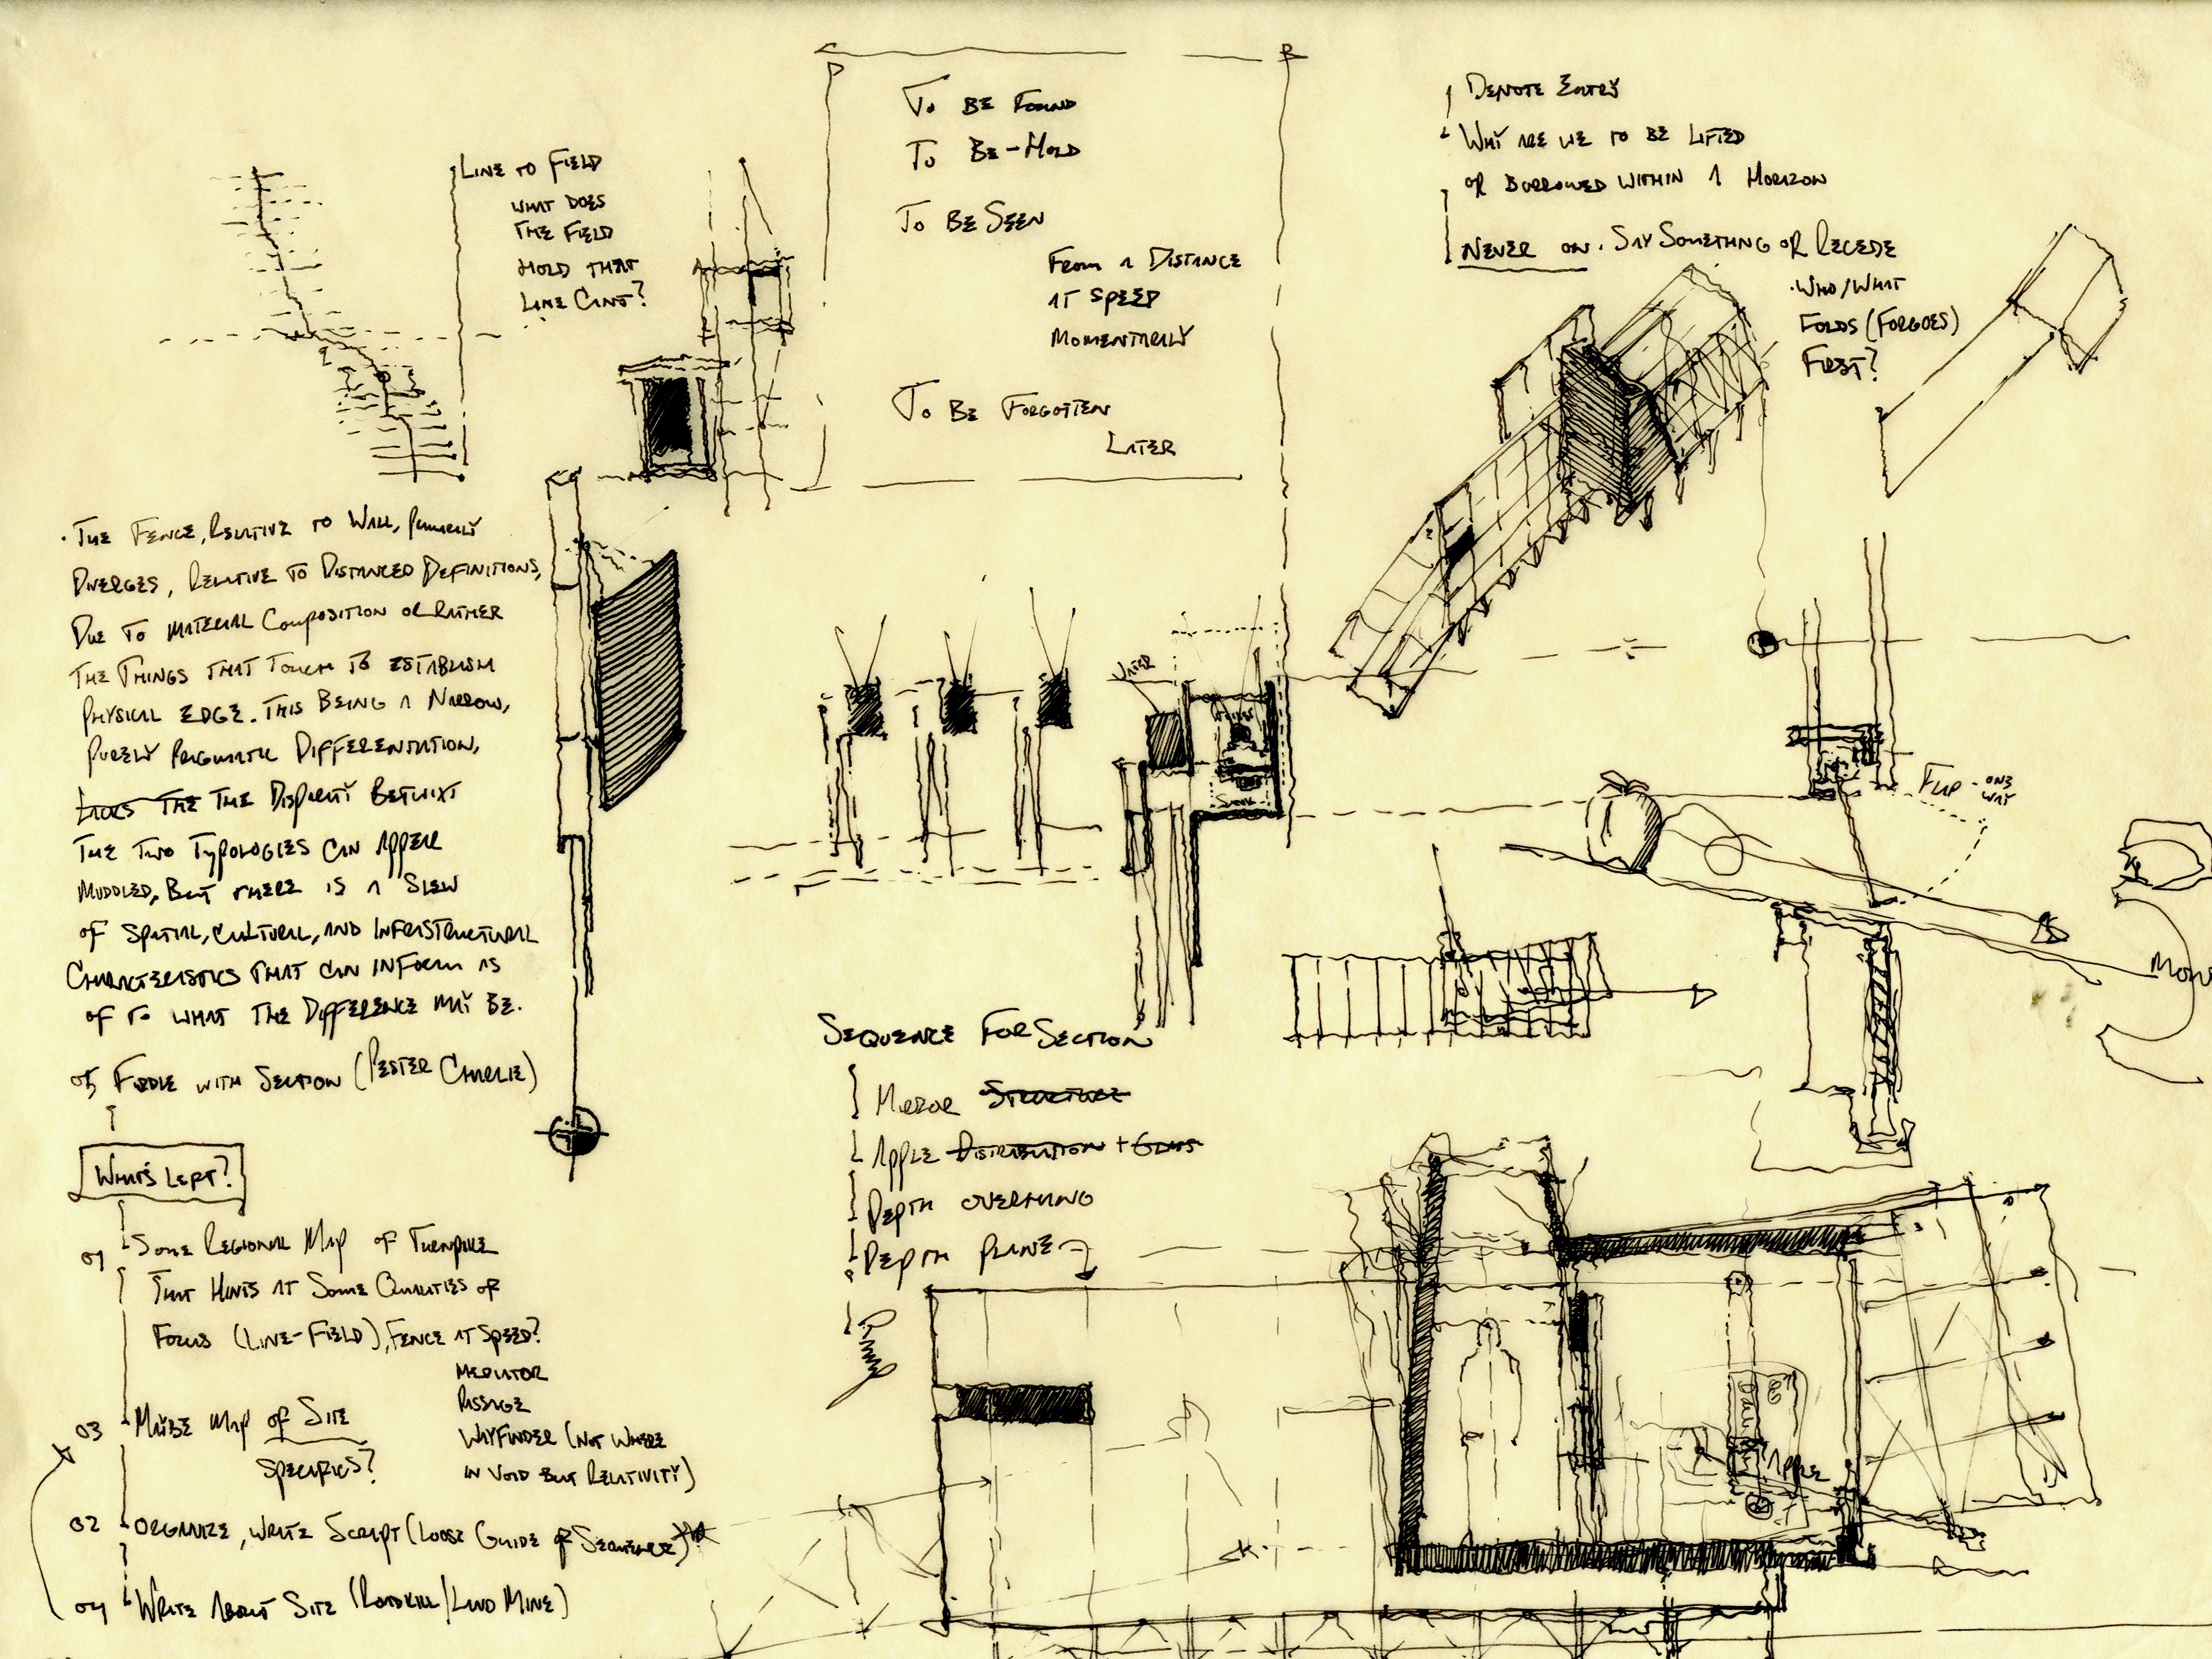 LINE TO FIELD
WHAT DOES
THE FIELD
HOLD THAT
LINE CANT?
TO BE FOUND
TO BE-HOLD
TO BE SEEN
FROM A DISTANCE
AT SPEED
MOMENTARILY
TO BE FORGOTTEN
LATER
DENOTE ENTRY
WHAT ARE WE TO BE LIFTED
OR BURROWED WITHIN A HORIZON
NEVER ON. SAY SOMETHING OR RECEDE
WHO/WHAT
FOLDS (FORGOES)
FIRST?
THE FENCE, RELATIVE TO WALL, PRIMARILY
DIVERGES, RELATIVE TO DISTANCED DEFINITIONS,
DUE TO MATERIAL COMPOSITION OR RATHER
THE THINGS THAT TOUCH TO ESTABLISH
PHYSICAL EDGE. THIS BEING A NARROW,
PURELY PRAGMATIC DIFFERENTATION,
LACKS THE THE DISPARITY BETWIXT
THE TWO TYPOLOGIES CAN APPEAR
MUDDLED, BUT THERE IS A SLEW
OF SPATIAL, CULTURAL, AND INFRASTRUCTURAL
CHARACTERISTICS THAT CAN INFORM AS
OF TO WHAT THE DIFFERENCE MAY BE.
05 FIDDLE WITH SECTION (PESTER CHARLIE)
WHAT'S LEFT?
01 SOME REGIONAL MAP OF TURNPIKE
THAT HINTS AT SOME QUALITIES OF
FOCUS (LINE-FIELD), FENCE AT SPEED?
MEDIATOR
PASSAGE
WAYFINDER (NOT WHERE
IN VOID BUT RELATIVITY)
03 MAYBE MAP OF SITE
SPECIFICS?
02 ORGANIZE, WRITE SCRIPT (LOOSE GUIDE OF SEQUENCE)
04 WRITE ABOUT SITE (ROADKILL/LAND MINE)
FLIP - ONE
WAY
SEQUENCE FOR SECTION
MIRROR STRUCTURE
APPLE DISTRIBUTION + GLASS
DEPTH OVERHANG
DEPTH PLANE
APPLE